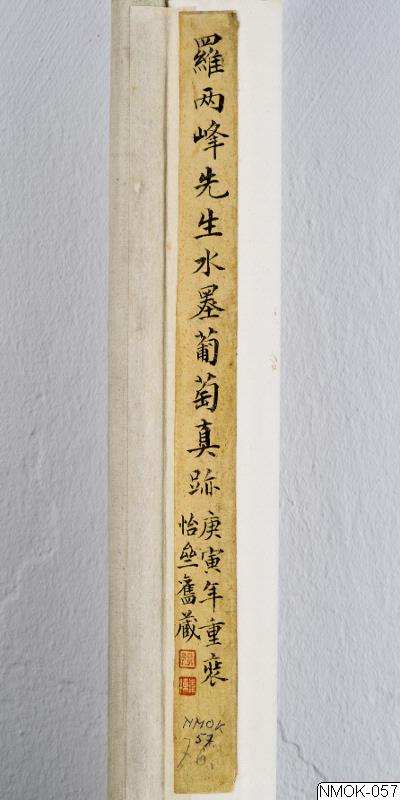 羅两峰先生水墨葡萄真跡
庚寅年重裝
怡壘舊藏
NMOK
57
76.
NMOK-057